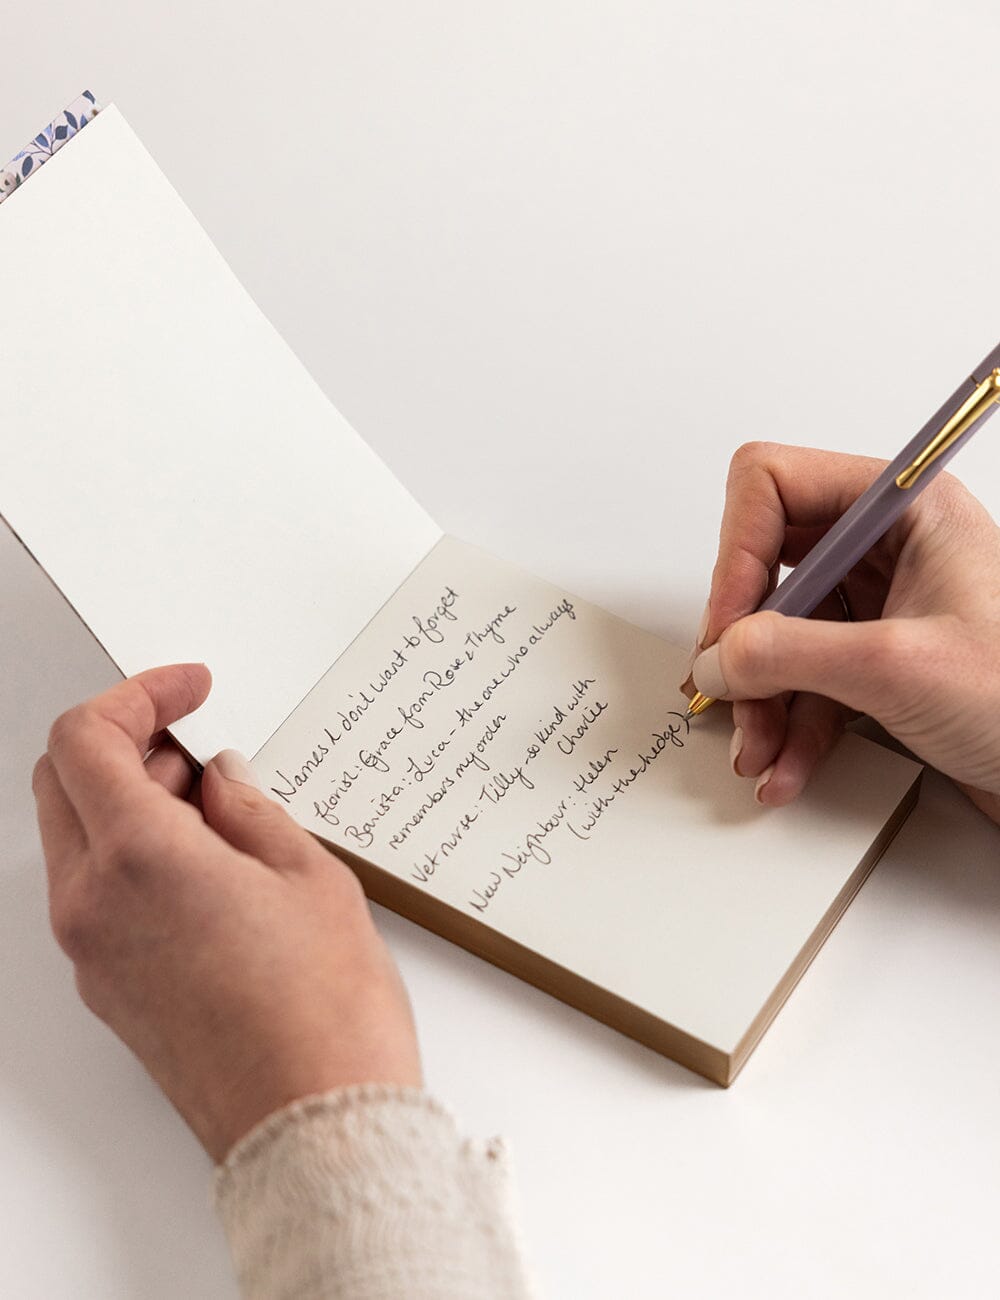 Names I don't want to forget
florist: Grace from Rose & Thyme
Barista: Luca - the one who always
remembers my order
Vet nurse: Tilly - so kind with
Charlie
New Neighbour: Helen
(with the hedge)